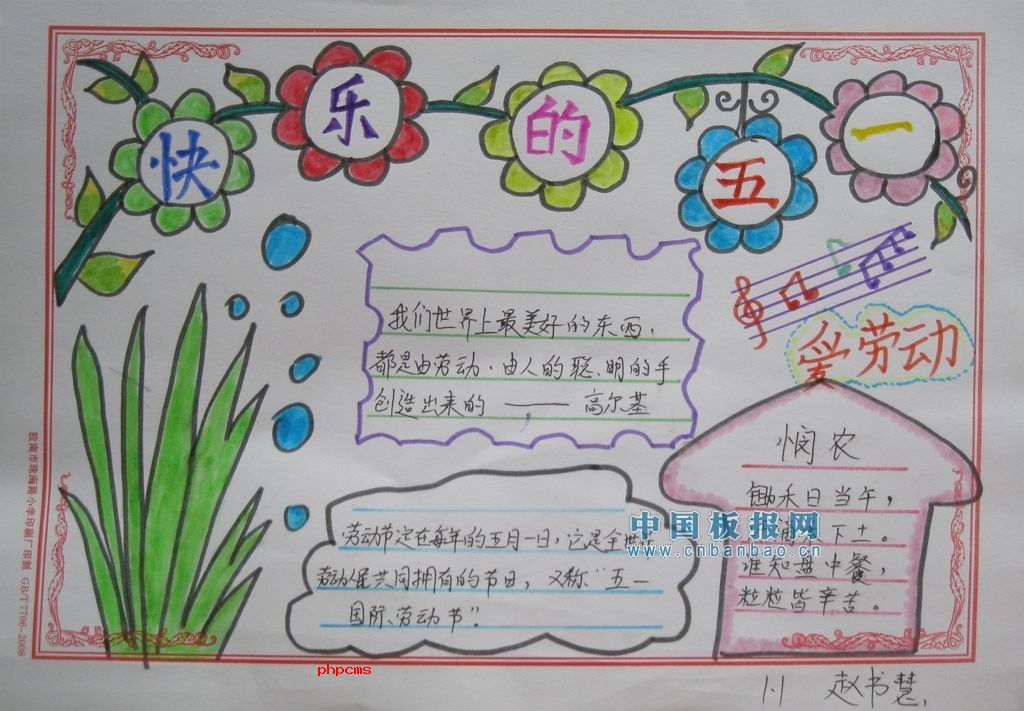 快乐的五一
我们世界上最美好的东西,
都是由劳动.由人的聪明的手
创造出来的 —— 高尔基
爱劳动
悯农
锄禾日当午,
下土。
谁知盘中餐,
粒粒皆辛苦。
劳动节定在每年的五月一日,它是全世
劳动人民共同拥有的节日,又称“五一
国际劳动节”.
中国板报网
www.cnbanbao.cn
胶南市珠海路小学印刷厂印制 GB/T 7706-2008
phpcms
1.1 赵书慧